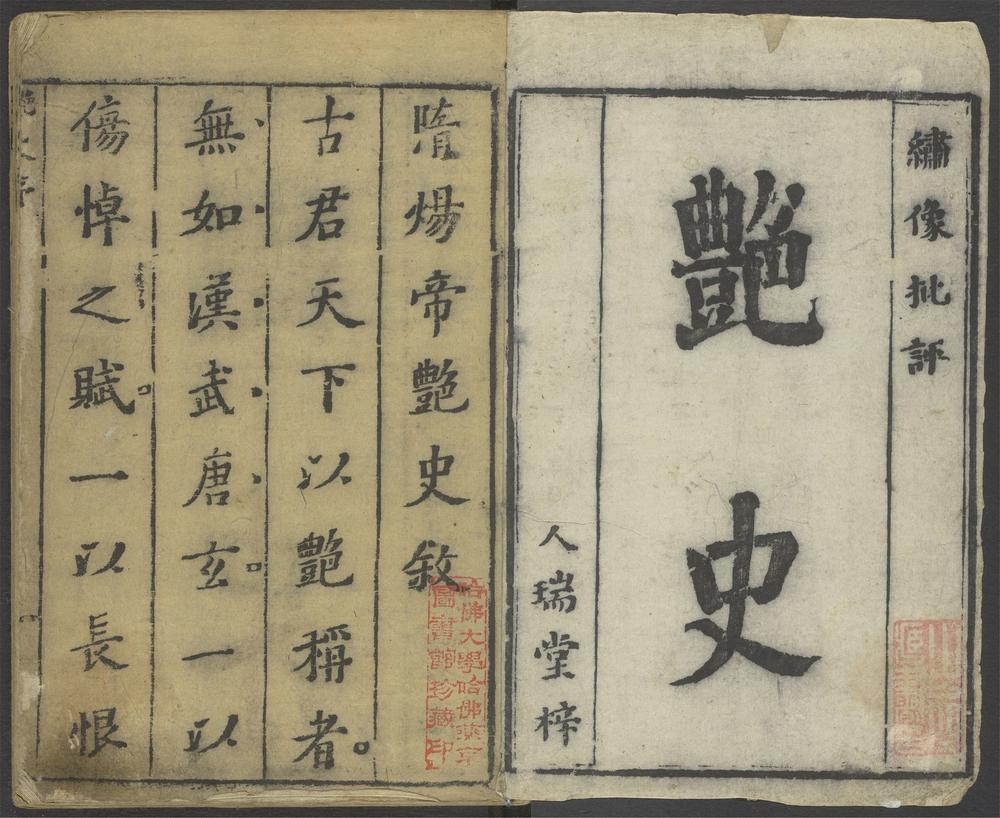 繡像批評
艶史
人瑞堂梓
隋煬帝艶史敘
古君天下以艶稱者。
無、如、漢、武、唐、玄。一以
傷悼之賦。一以長恨
哈佛大學哈佛燕京
圖書館珍藏印